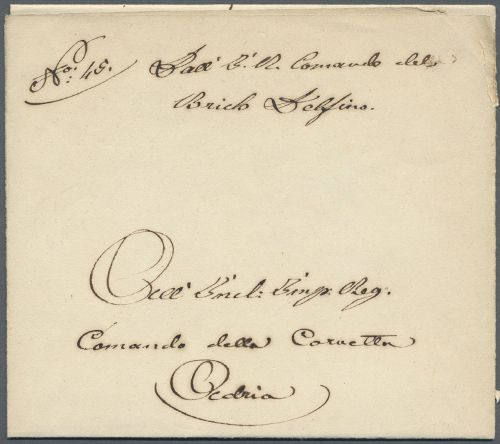 No: 45.
Dall' I. R. Comando del
Brick Delfino.
All' Incl: Imp: Reg.
Comando della Corvetta
Adria